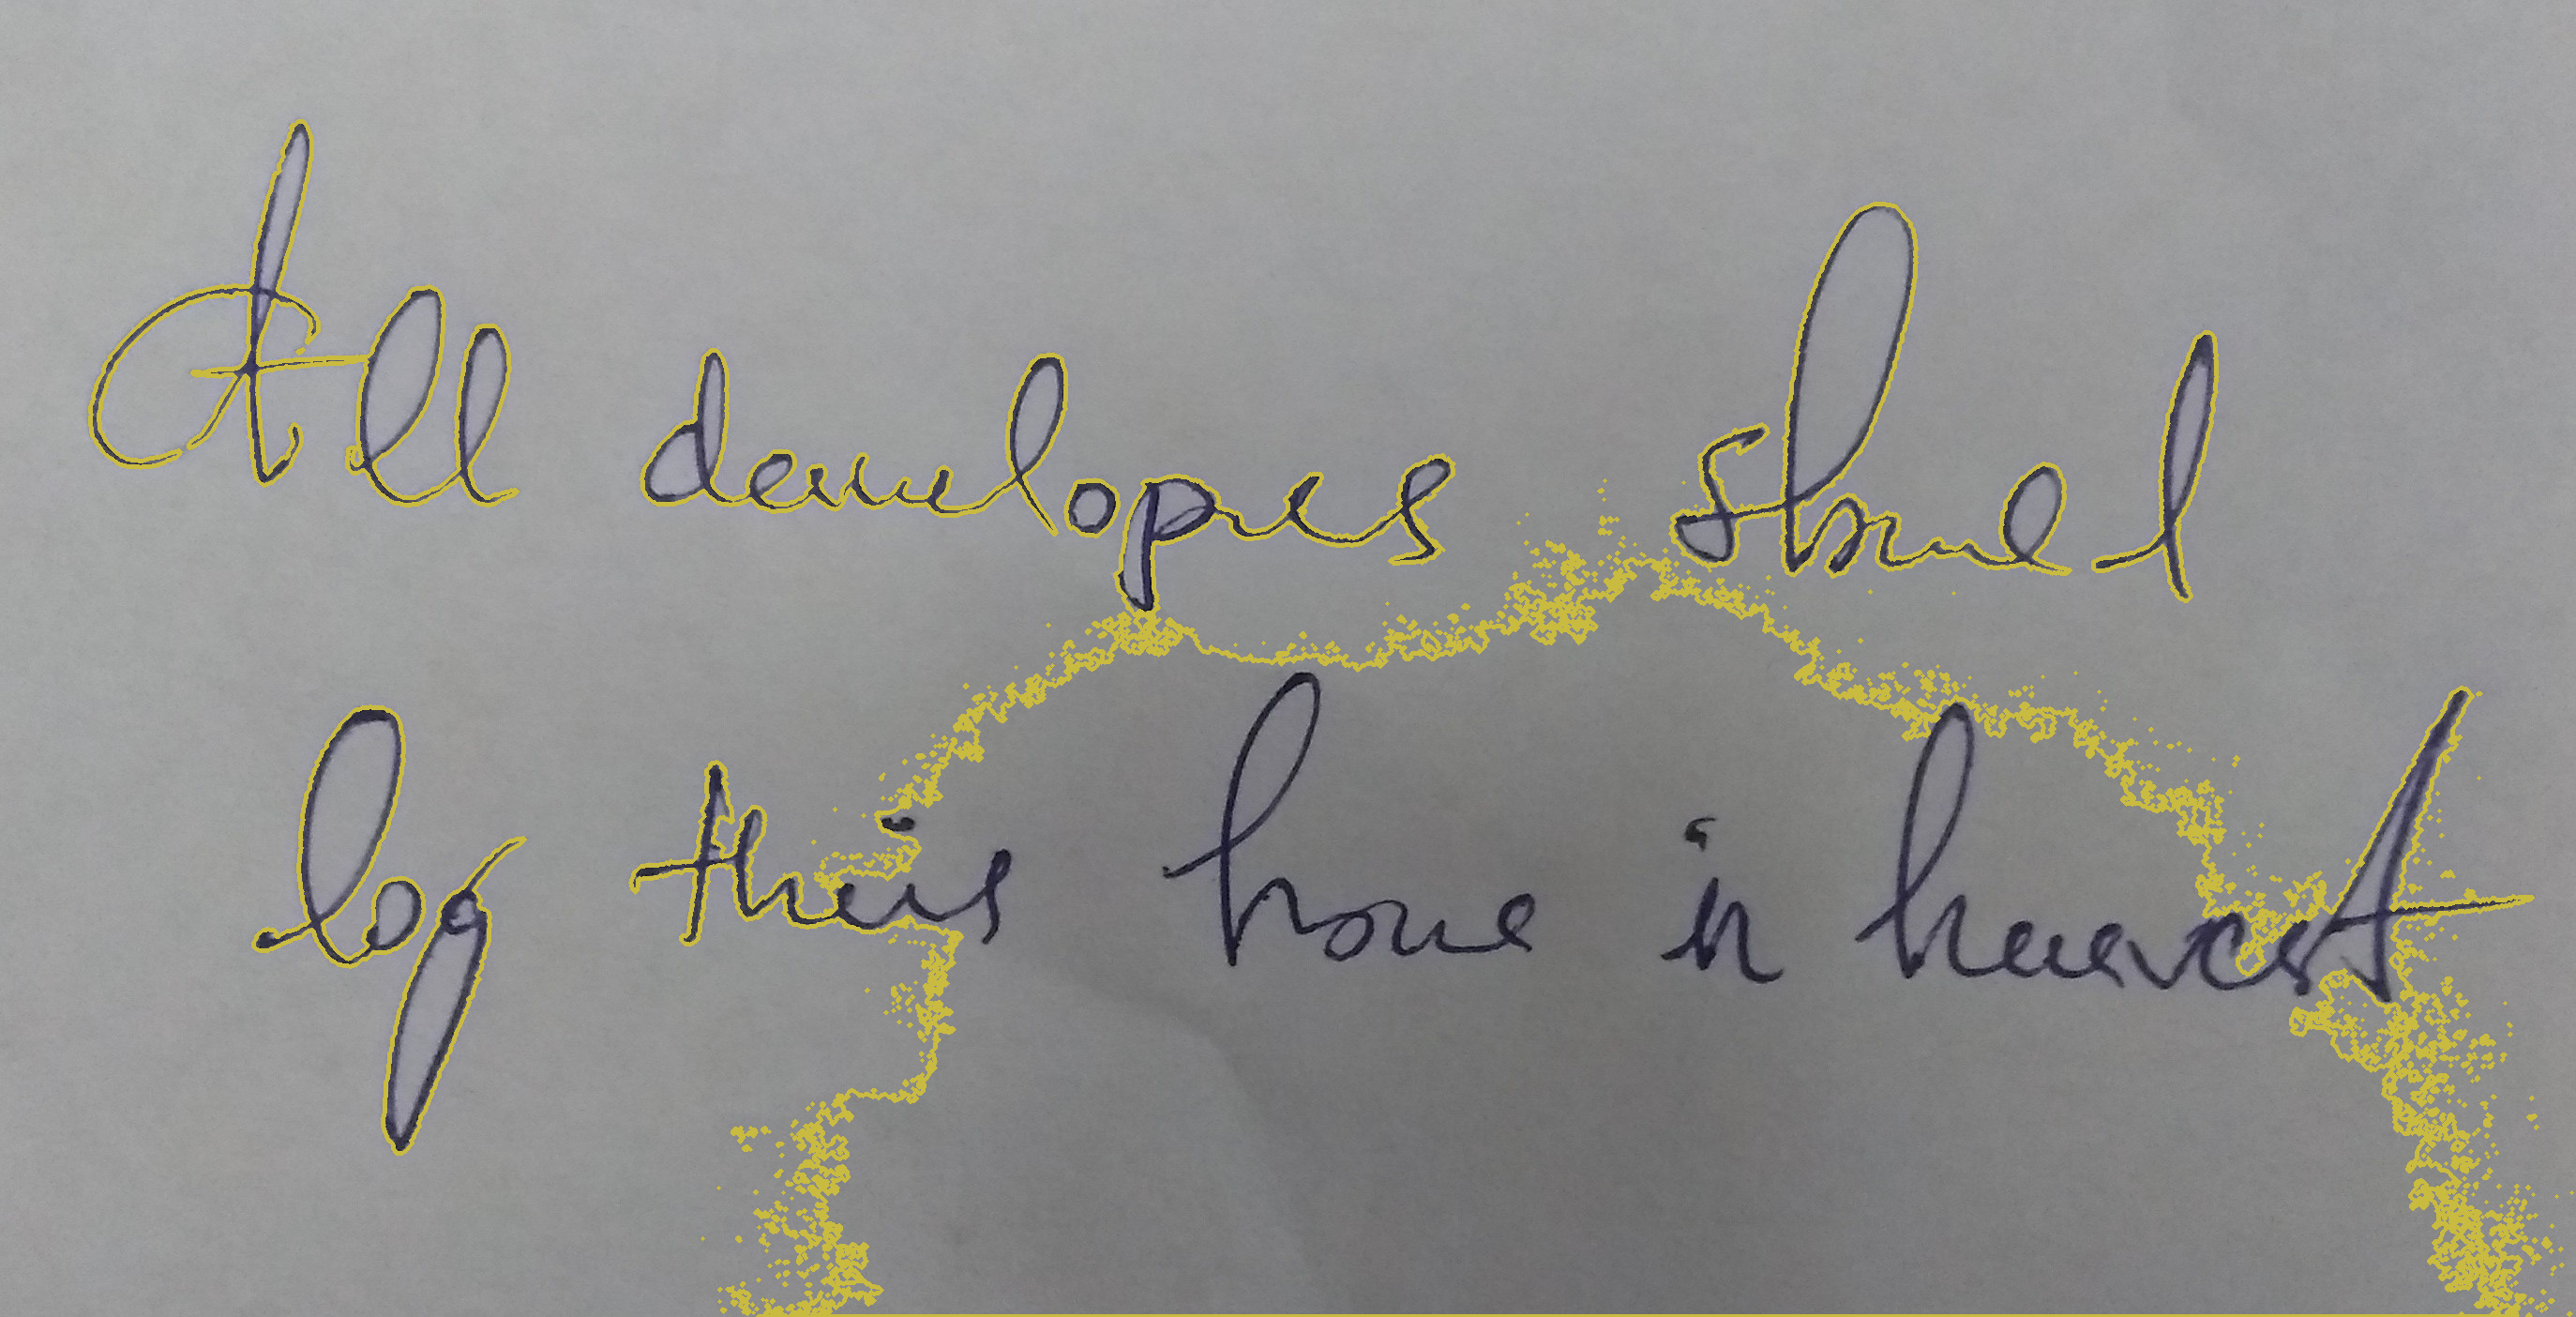 All developers should
log their hour in harvest